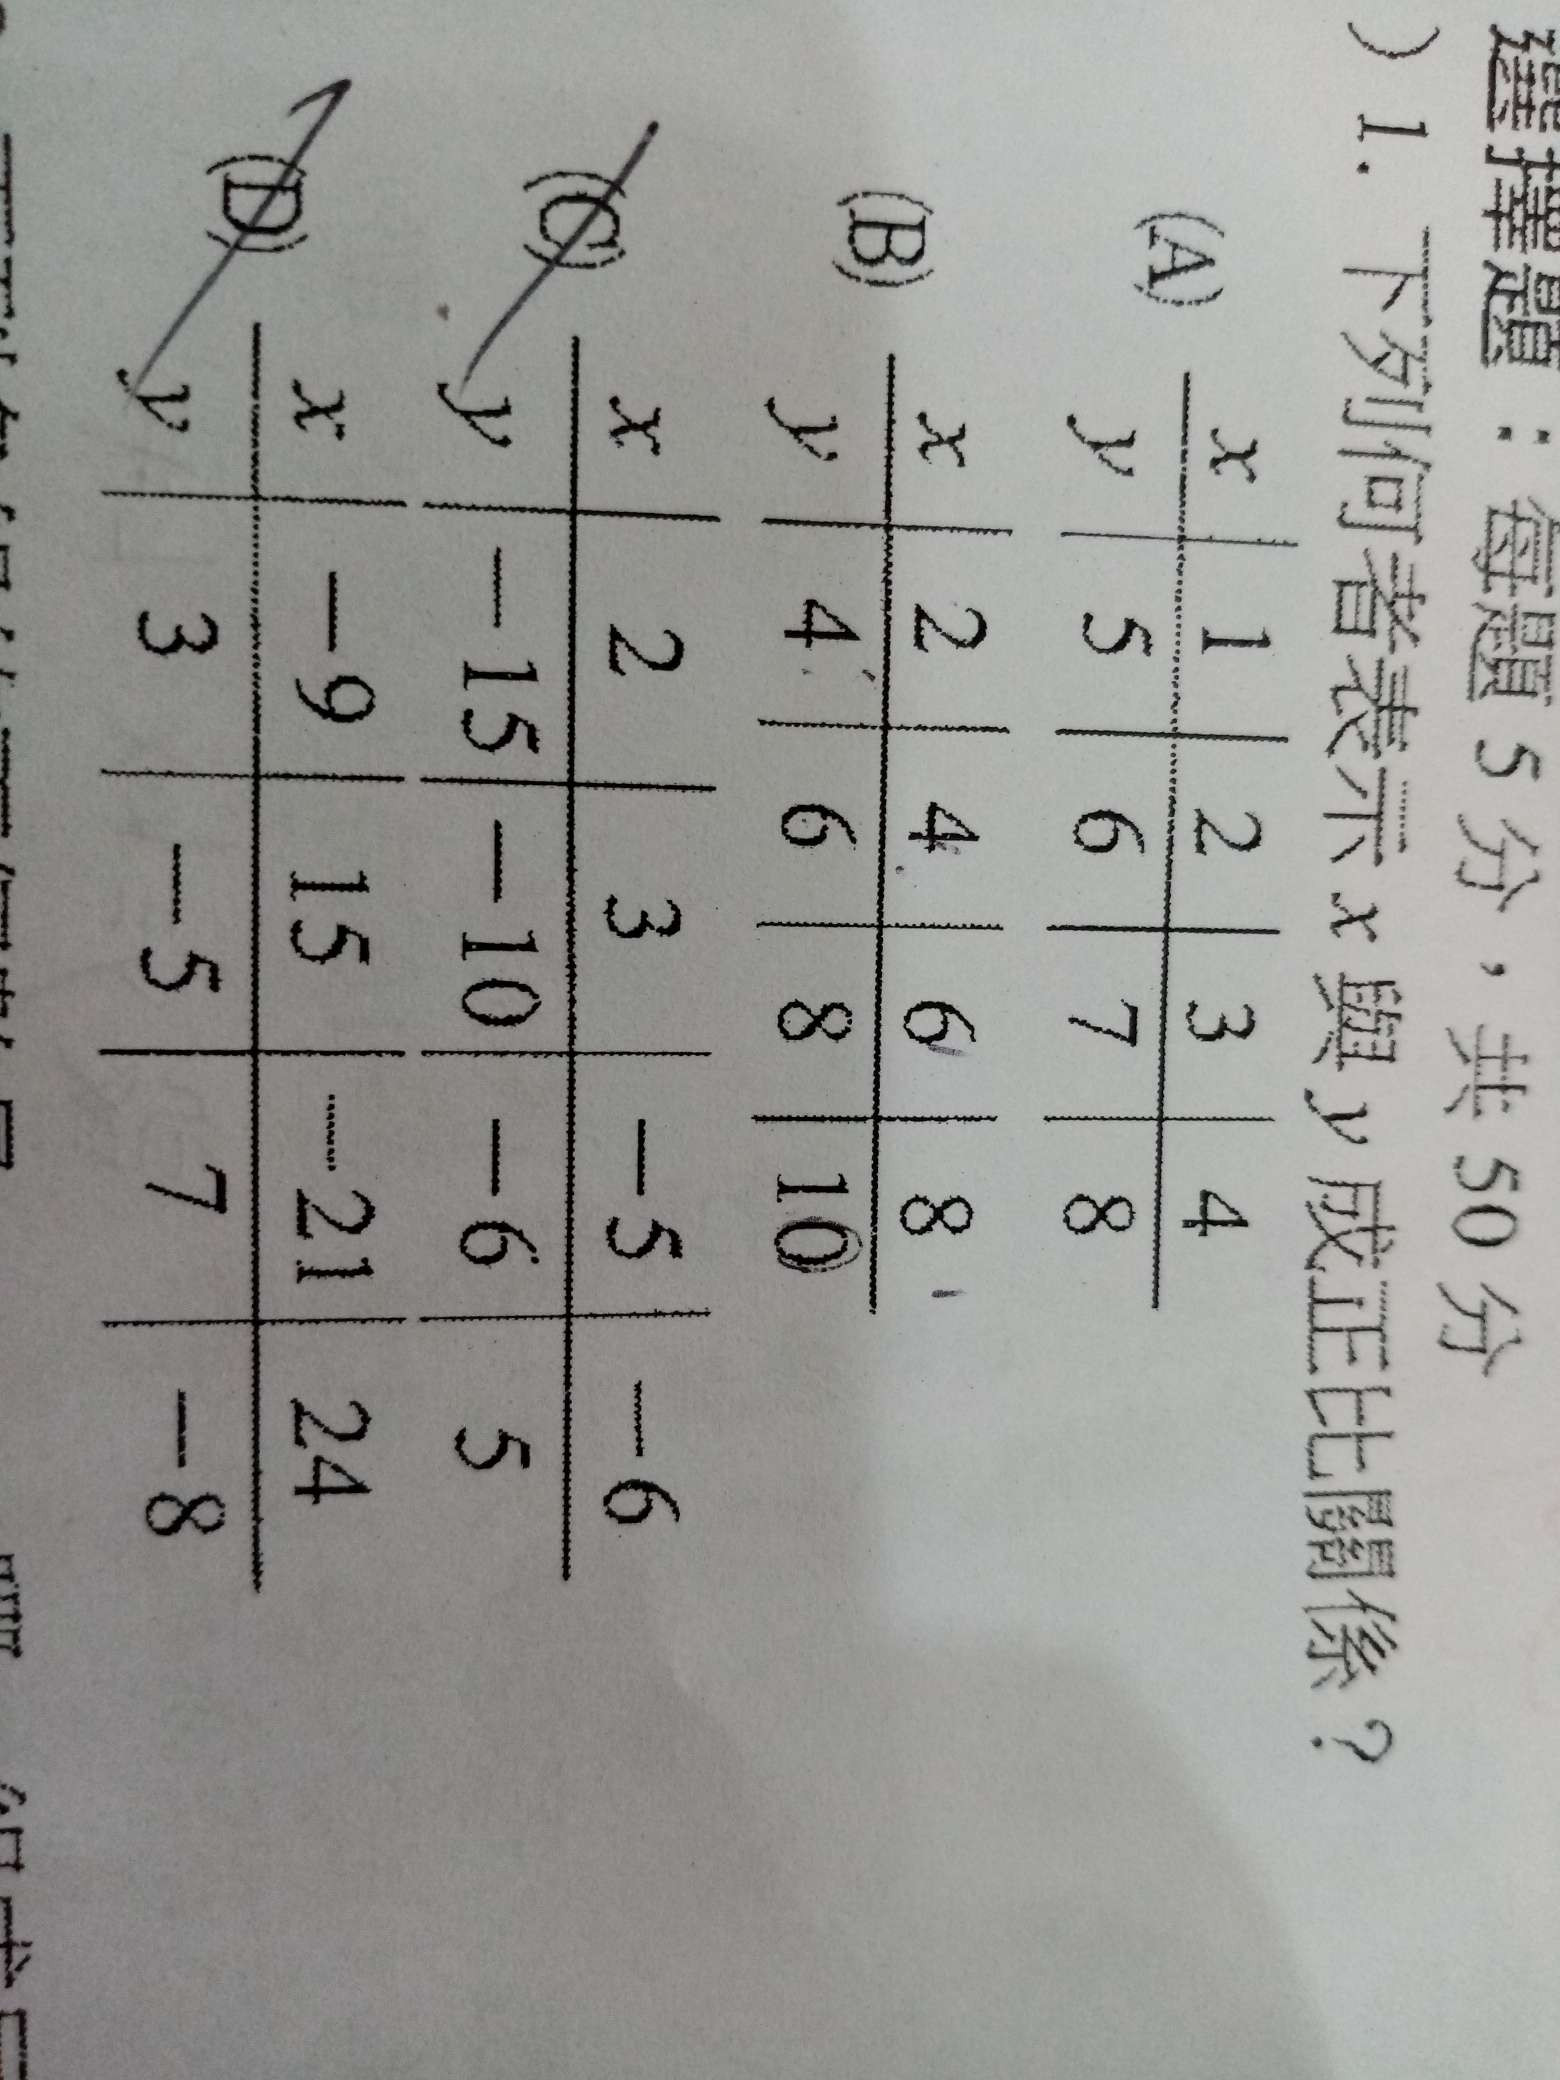 選擇題：每題 5 分，共 50 分
) 1. 下列何者表示 x 與 y 成正比關係？
(A)
x 1 2 3 4
y 5 6 7 8
(B)
x 2 4 6 8
y 4 6 8 10
(C)
x 2 3 −5 −6
y −15 −10 −6 5
(D)
x −9 15 −21 24
y 3 −5 7 −8